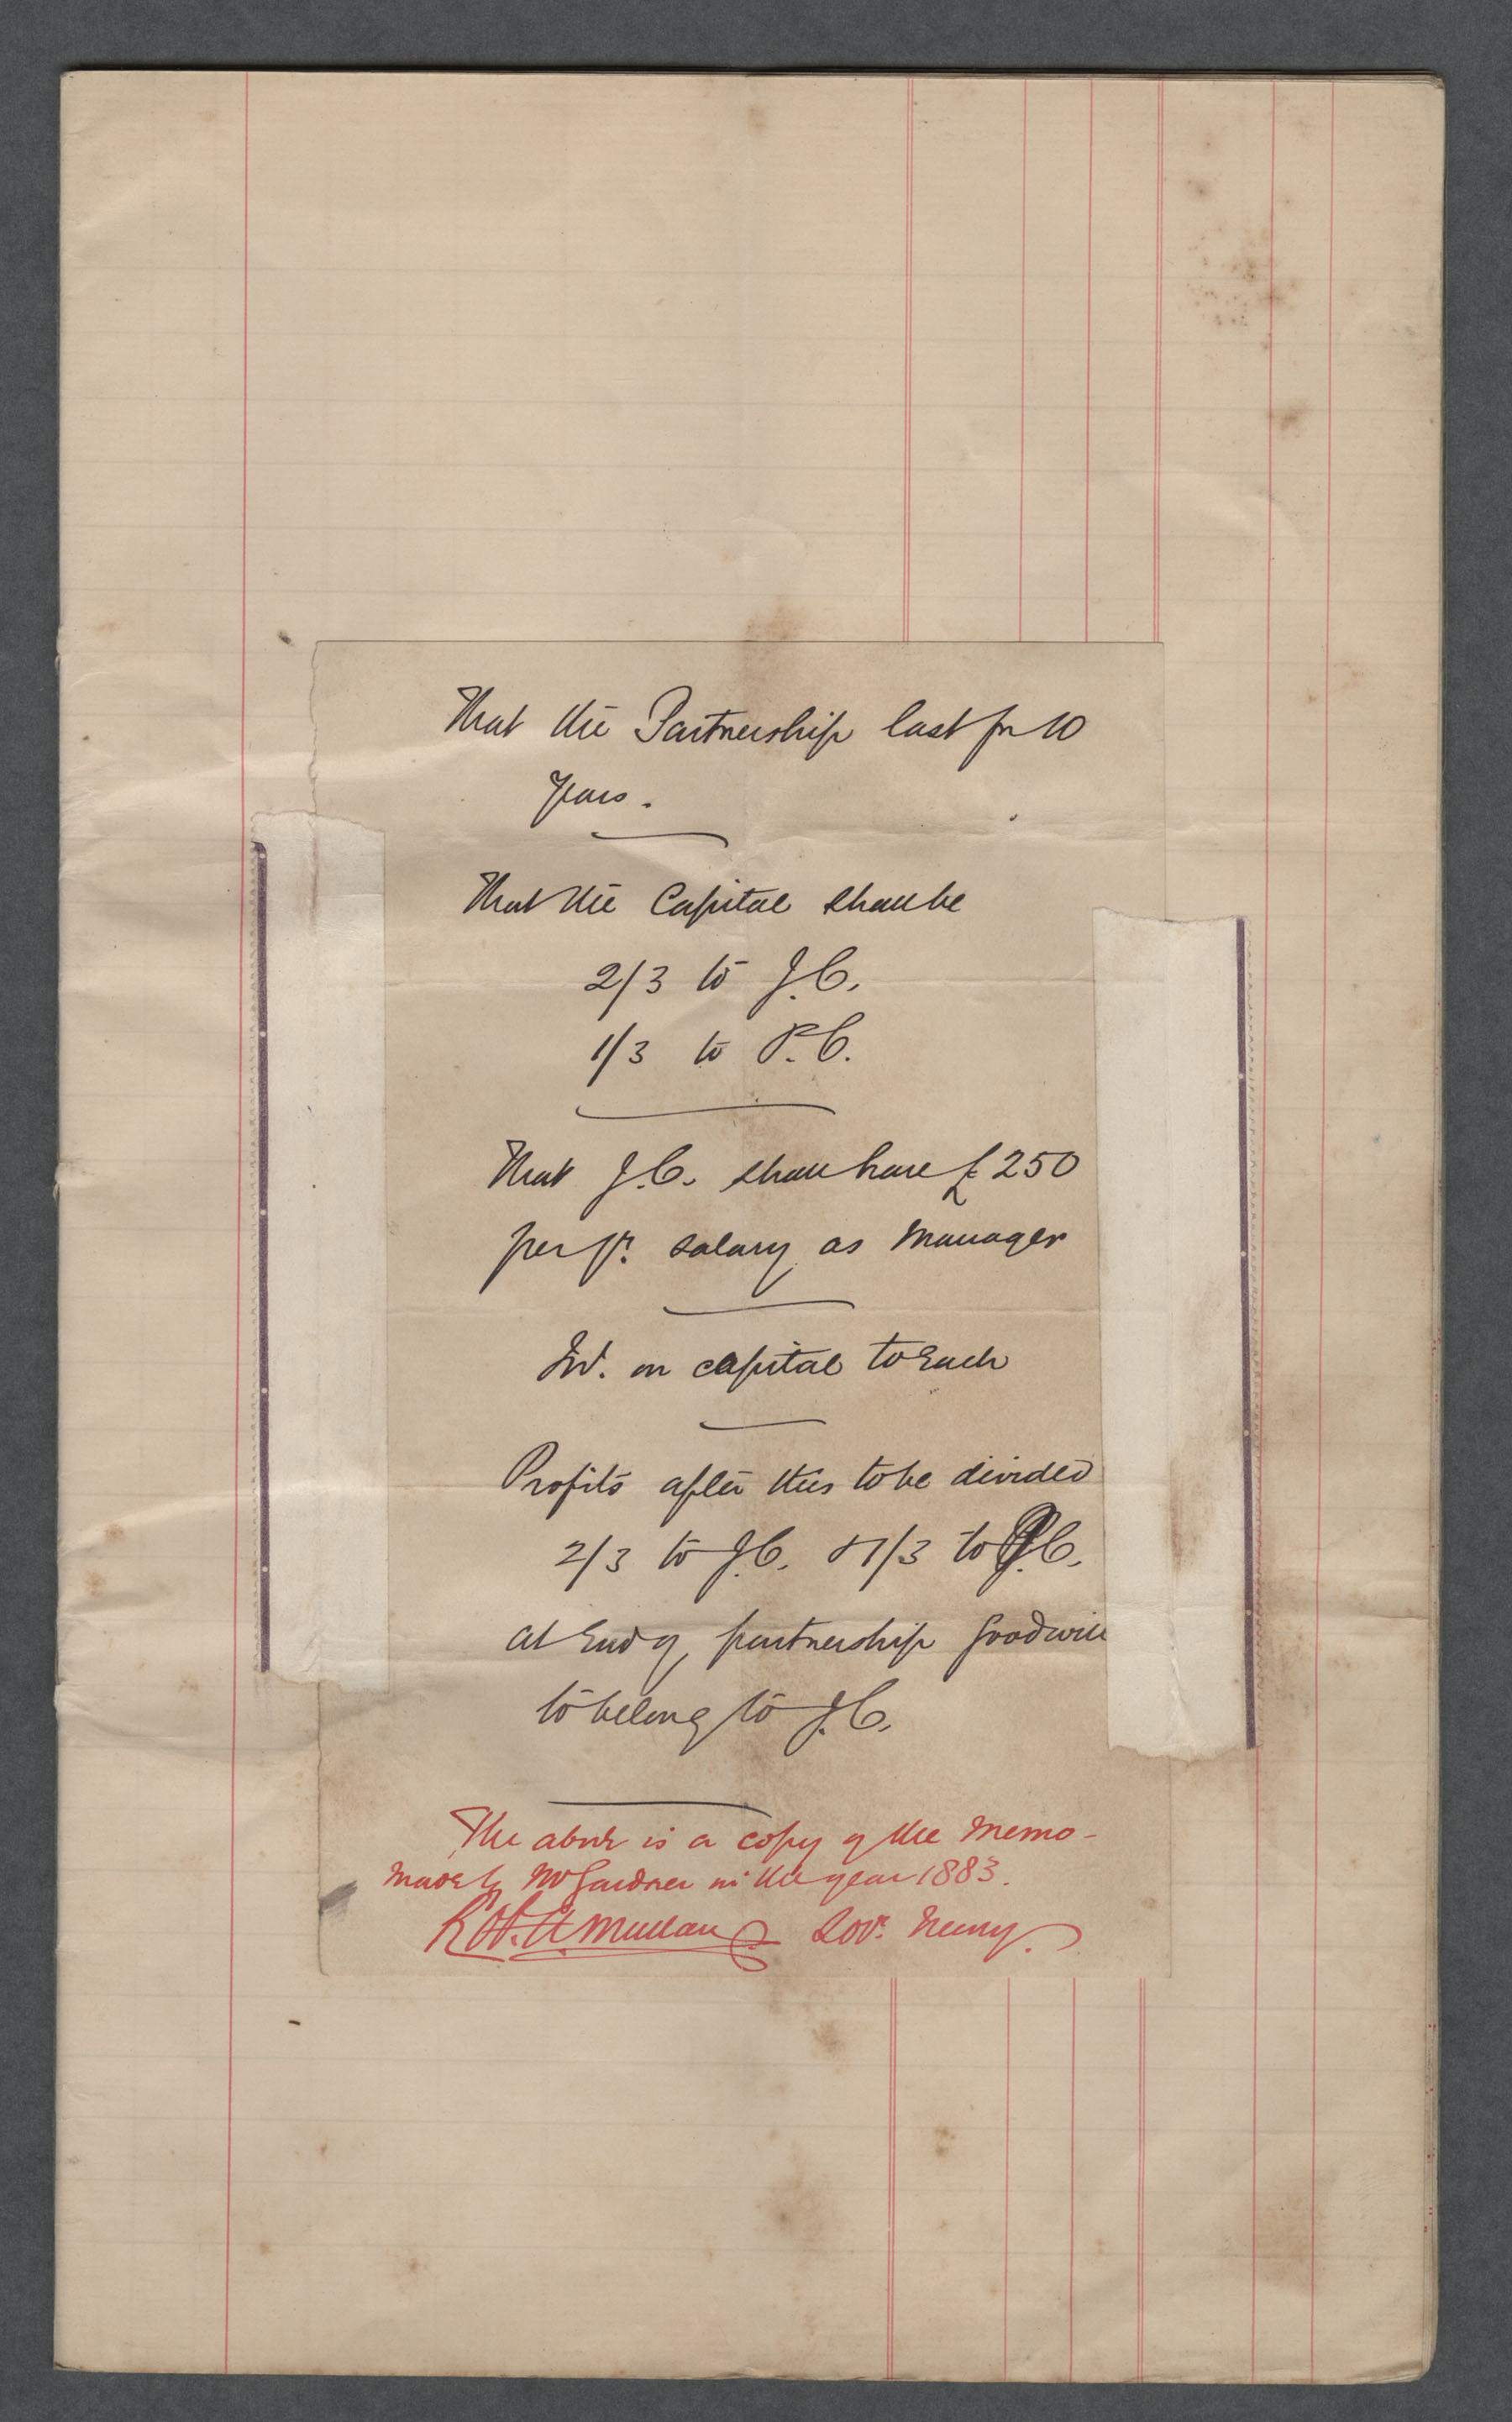 That the Partnership last for 10
years.
That the Capital shall be
2/3 to J.C.
1/3 to P.C.
That J.C. shall have £250
per yr. salary as Manager
Int. on capital to each
Profits after this to be divided
2/3 to J.C. & 1/3 to P.C.
at end of partnership Goodwill
to belong to J.C.
The above is a copy of the Memo-
made by Mr Gardner in the year 1883.
Solr. Newry.